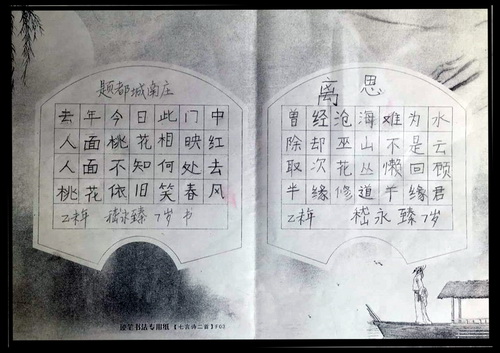 题都城南庄
去年今日此门中
人面桃花相映红
人面不知何处去
桃花依旧笑春风
乙未年 嵇永臻 7岁 书
离思
曾经沧海难为水
除却巫山不是云
取次花丛懒回顾
半缘修道半缘君
乙未年 嵇永臻 7岁
笔书法专用纸【七言诗二首】P02